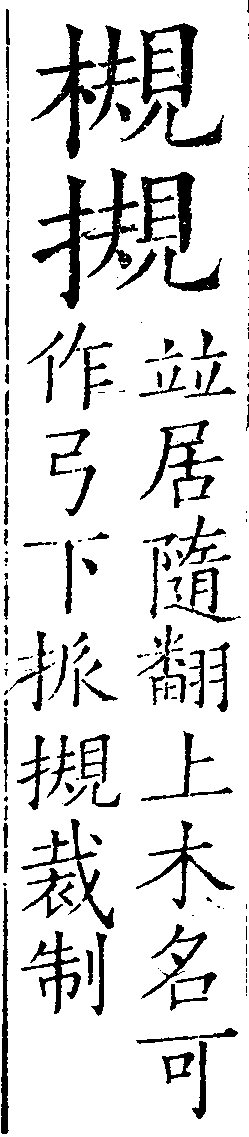 槻摫
竝居隨翻上木名可
作弓下挀摫裁制